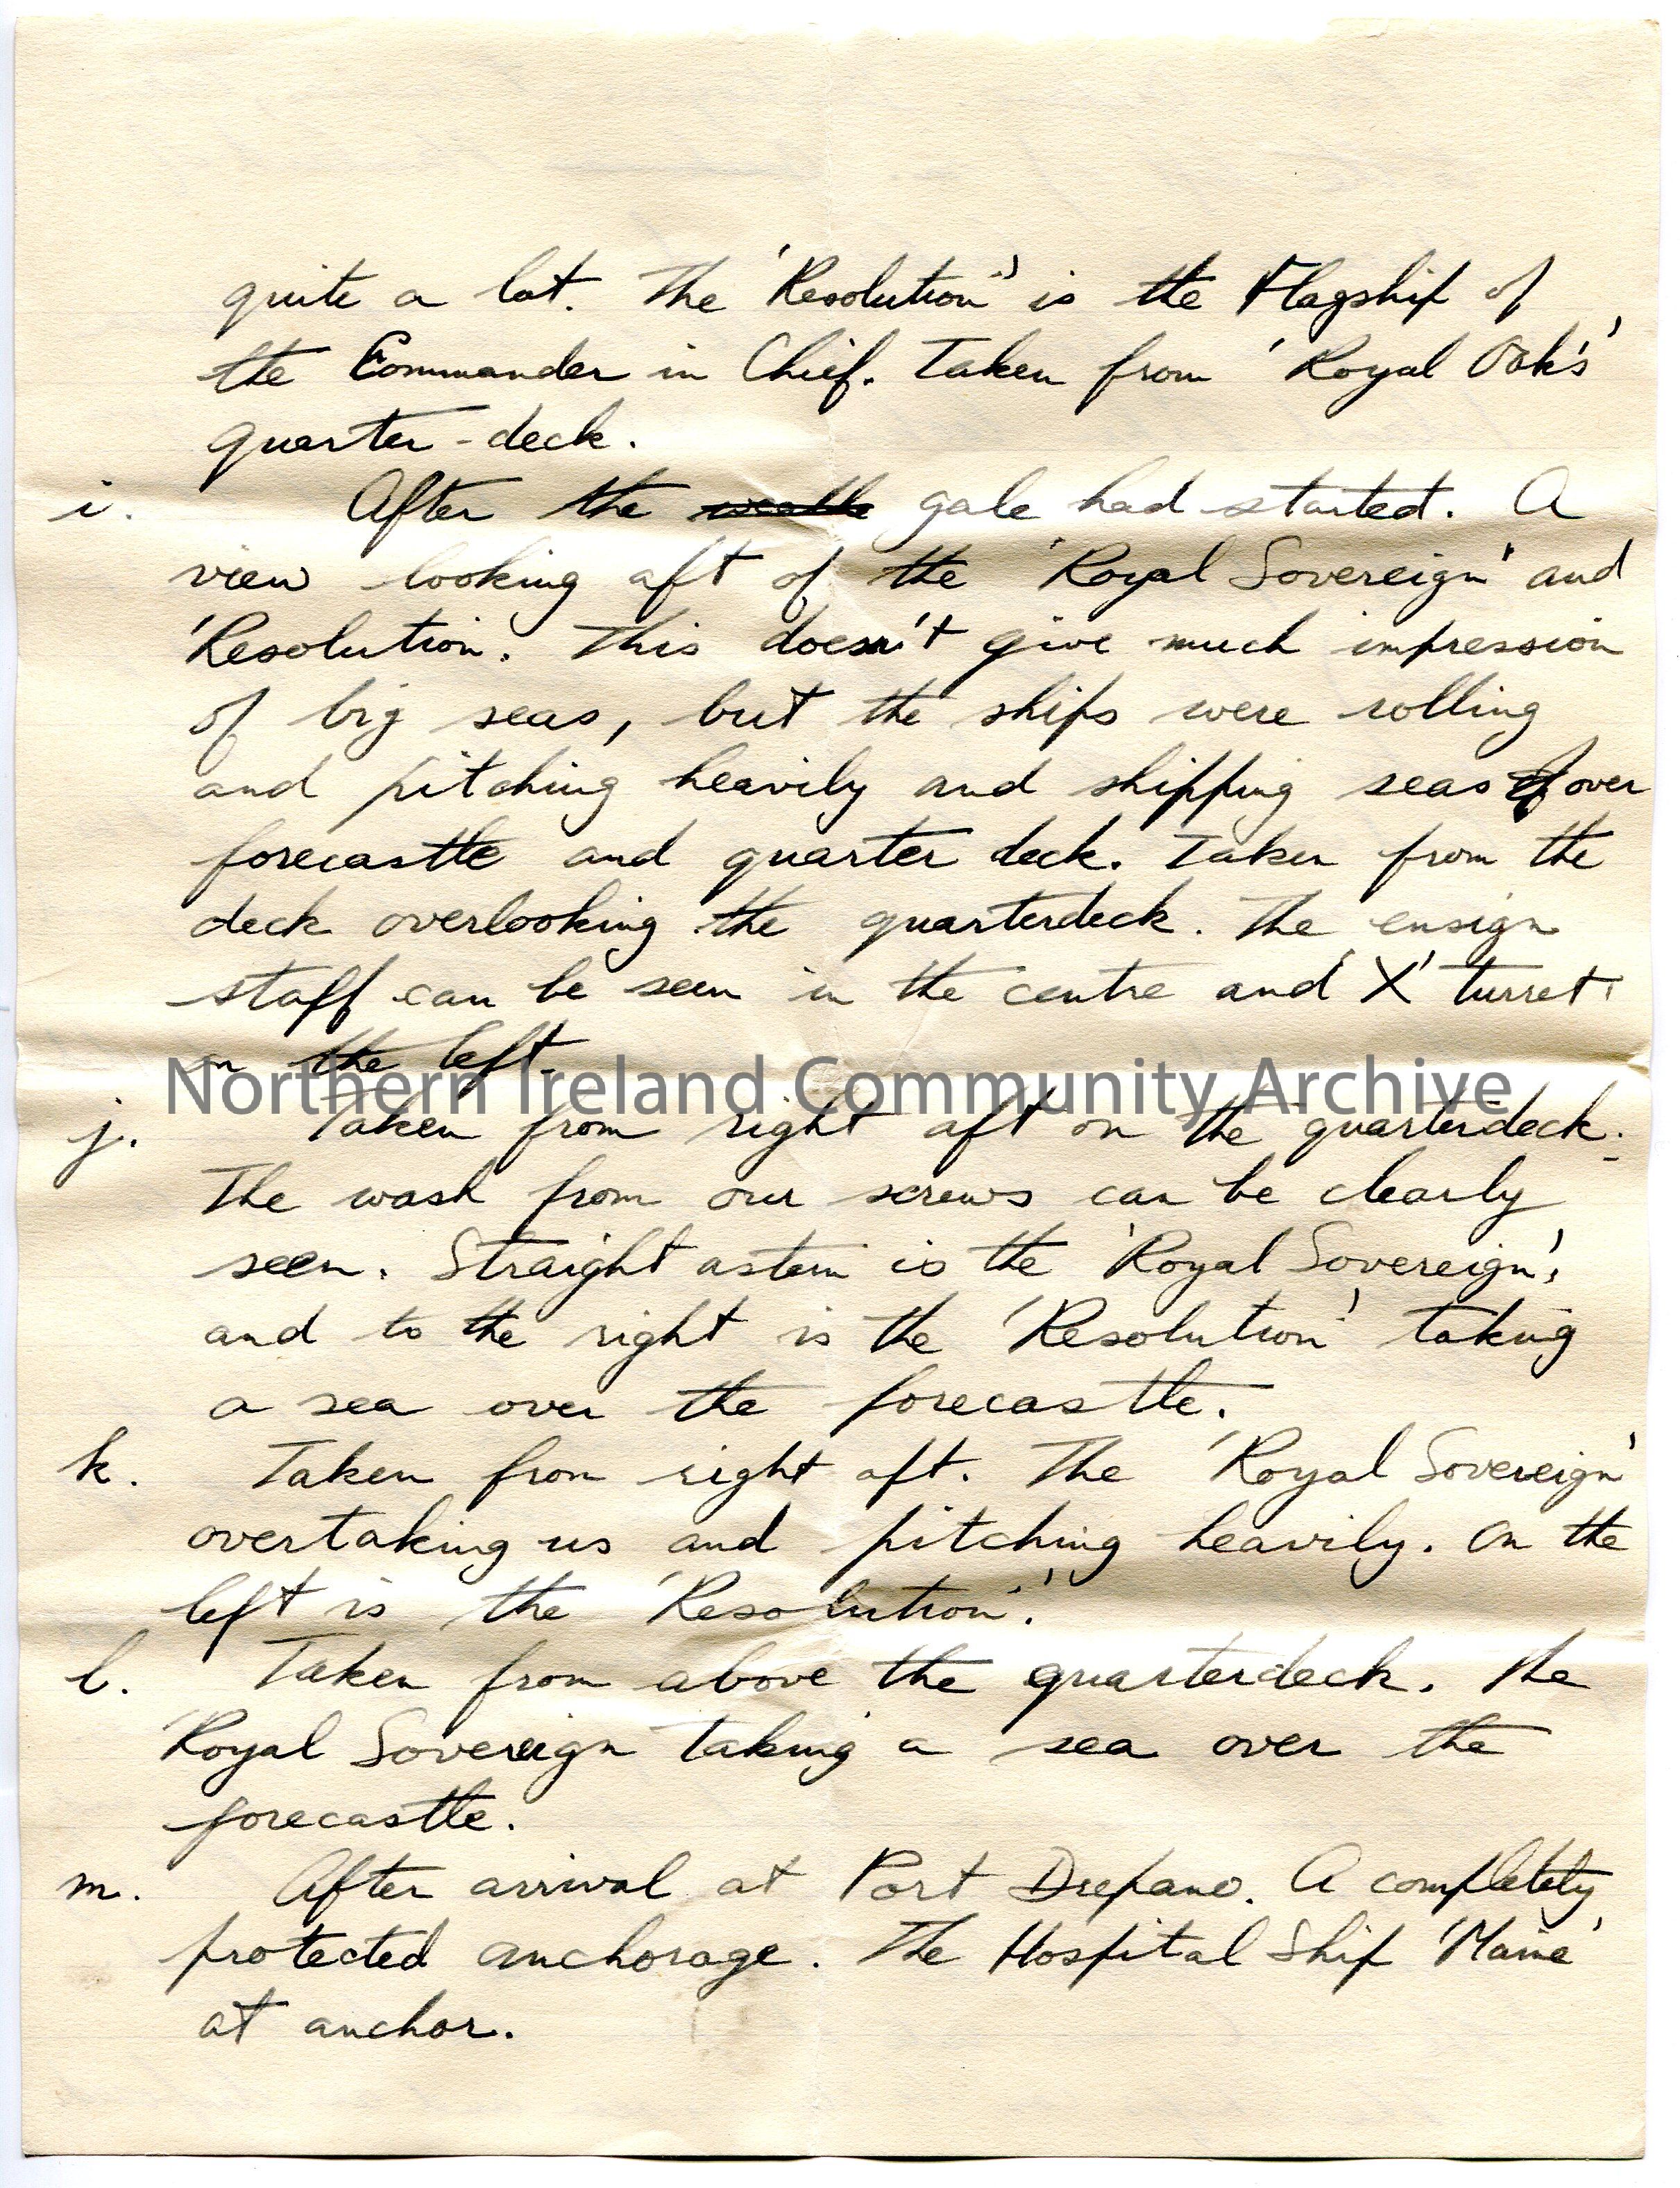 quite a lot. The 'Resolution' is the Flagship of
the Commander in Chief. Taken from 'Royal Oak's'
quarter-deck.
i. After the gale had started. A
view looking aft of the 'Royal Sovereign' and
'Resolution. This doesn't give much impression
of big seas, but the ships were rolling
and pitching heavily and shipping seas over
forecastle and quarter deck. Taken from the
deck overlooking the quarterdeck. The ensign
staff can be seen in the centre and 'X' turret
on the left.
Northern Ireland Community Archive
j. Taken from right aft on the quarterdeck.
The wash from our screws can be clearly
seen. Straight astern is the 'Royal Sovereign',
and to the right is the 'Resolution' taking
a sea over the forecastle.
k. Taken from right aft. The 'Royal Sovereign'
overtaking us and pitching heavily. On the
left is the 'Resolution'.
l. Taken from above the quarterdeck. The
'Royal Sovereign taking a sea over the
forecastle.
m. After arrival at Port Drepano. A completely
protected anchorage. The Hospital Ship 'Maine'
at anchor.